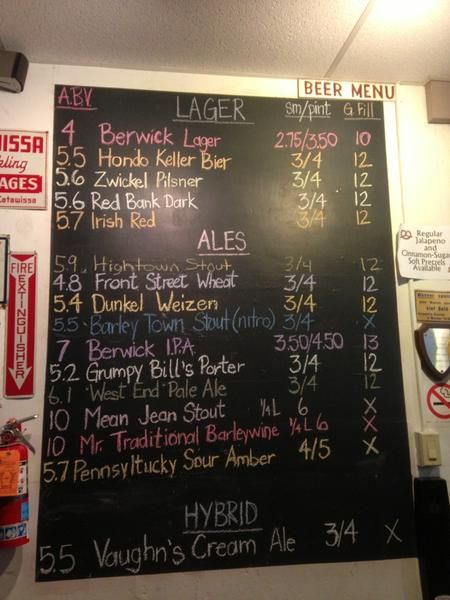 BEER MENU
A.B.V. LAGER Sm/pint G.Fill
4 Berwick Lager 2.75/3.50 10
5.5 Hondo Keller Bier 3/4 12
5.6 Zwickel Pilsner 3/4 12
5.6 Red Bank Dark 3/4 12
5.7 Irish Red 3/4 12
ALES
5.9 Hightown Stout 3/4 12
4.8 Front Street Wheat 3/4 12
5.4 Dunkel Weizen 3/4 12
5.5 Barley Town Stout (nitro) 3/4 X
7 Berwick I.P.A. 3.50/4.50 13
5.2 Grumpy Bill's Porter 3/4 12
6.1 West End Pale Ale 3/4 12
10 Mean Jean Stout 1/4L 6 X
10 Mr. Traditional Barleywine 1/4L 6 X
5.7 Pennsyltucky Sour Amber 4/5 X
HYBRID
5.5 Vaughn's Cream Ale 3/4 X
AGES
Catawissa
FIRE EXTINGUISHER
Regular
Jalapeno
and
Cinnamon-Sugar
Soft Pretzels
Available